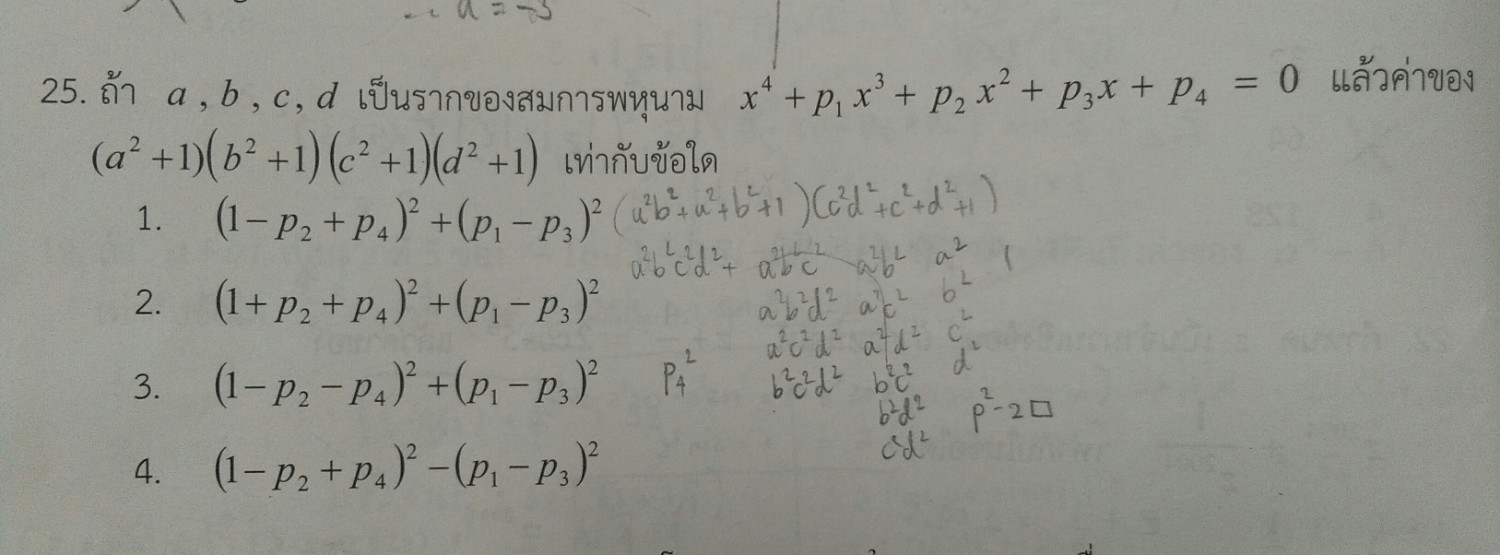 ∴ a = -3
25. ถ้า a , b , c , d เป็นรากของสมการพหุนาม x⁴ + p₁x³ + p₂x² + p₃x + p₄ = 0 แล้วค่าของ
(a² +1)(b² +1)(c² +1)(d² +1) เท่ากับข้อใด
1. (1− p₂ + p₄)² +(p₁ − p₃)² (a²b²+a²+b²+1)(c²d²+c²+d²+1)
a²b²c²d²+ a²b²c² a²b² a² 1
2. (1+ p₂ + p₄)² +(p₁ − p₃)²
a²b²d² a²c² b²
a²c²d² a²d² c²
3. (1− p₂ − p₄)² +(p₁ − p₃)² p₄² b²c²d² b²c² d²
b²d² p²-2□
c²d²
4. (1− p₂ + p₄)² −(p₁ − p₃)²